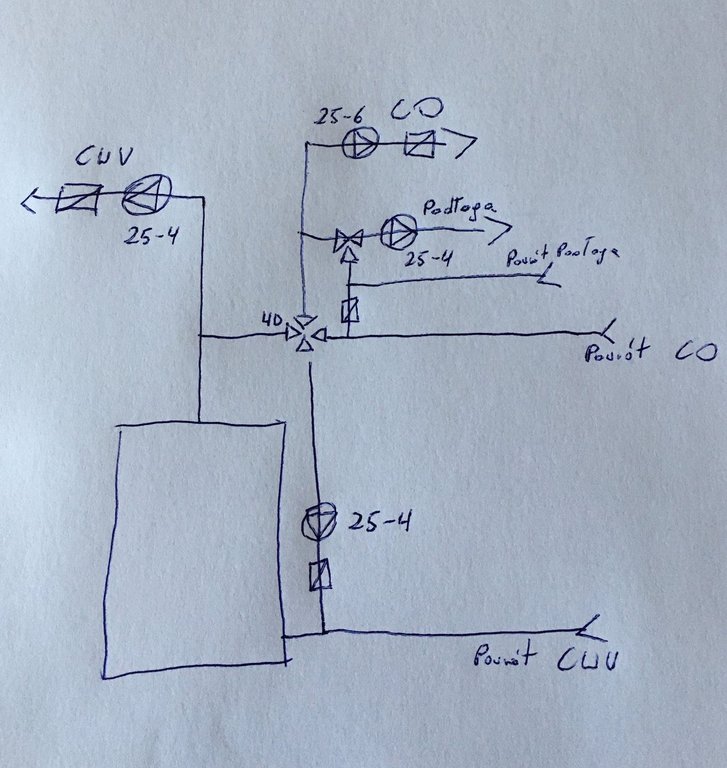 25-6 CO
CWU
25-4
Podłoga
25-4
Powrót Podłoga
4D
Powrót CO
25-4
Powrót CWU